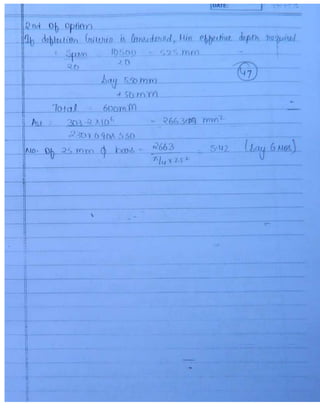 DATE
2nd Of option
If deflection criteria is considered, Min effective depth required
= Span / 20 = 10500 / 20 = 525 mm
47
Say 550 mm
+ 50 mm
Total = 600 mm
Ast = 303.2 x 10⁶ / 230 x 0.90 x 550 = 2663 mm²
No. Of 25 mm ф bars = 2663 / π/4 x 25² = 5.42 (Say 6 Nos)